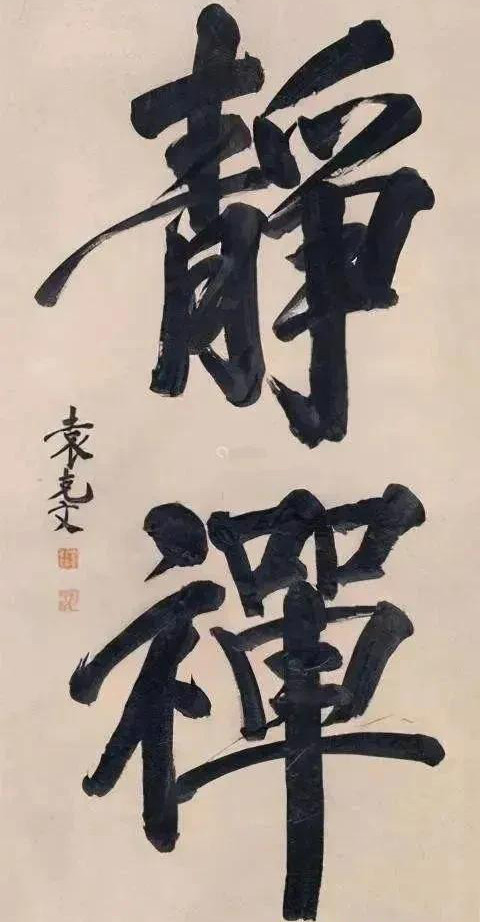 靜禪
袁克文